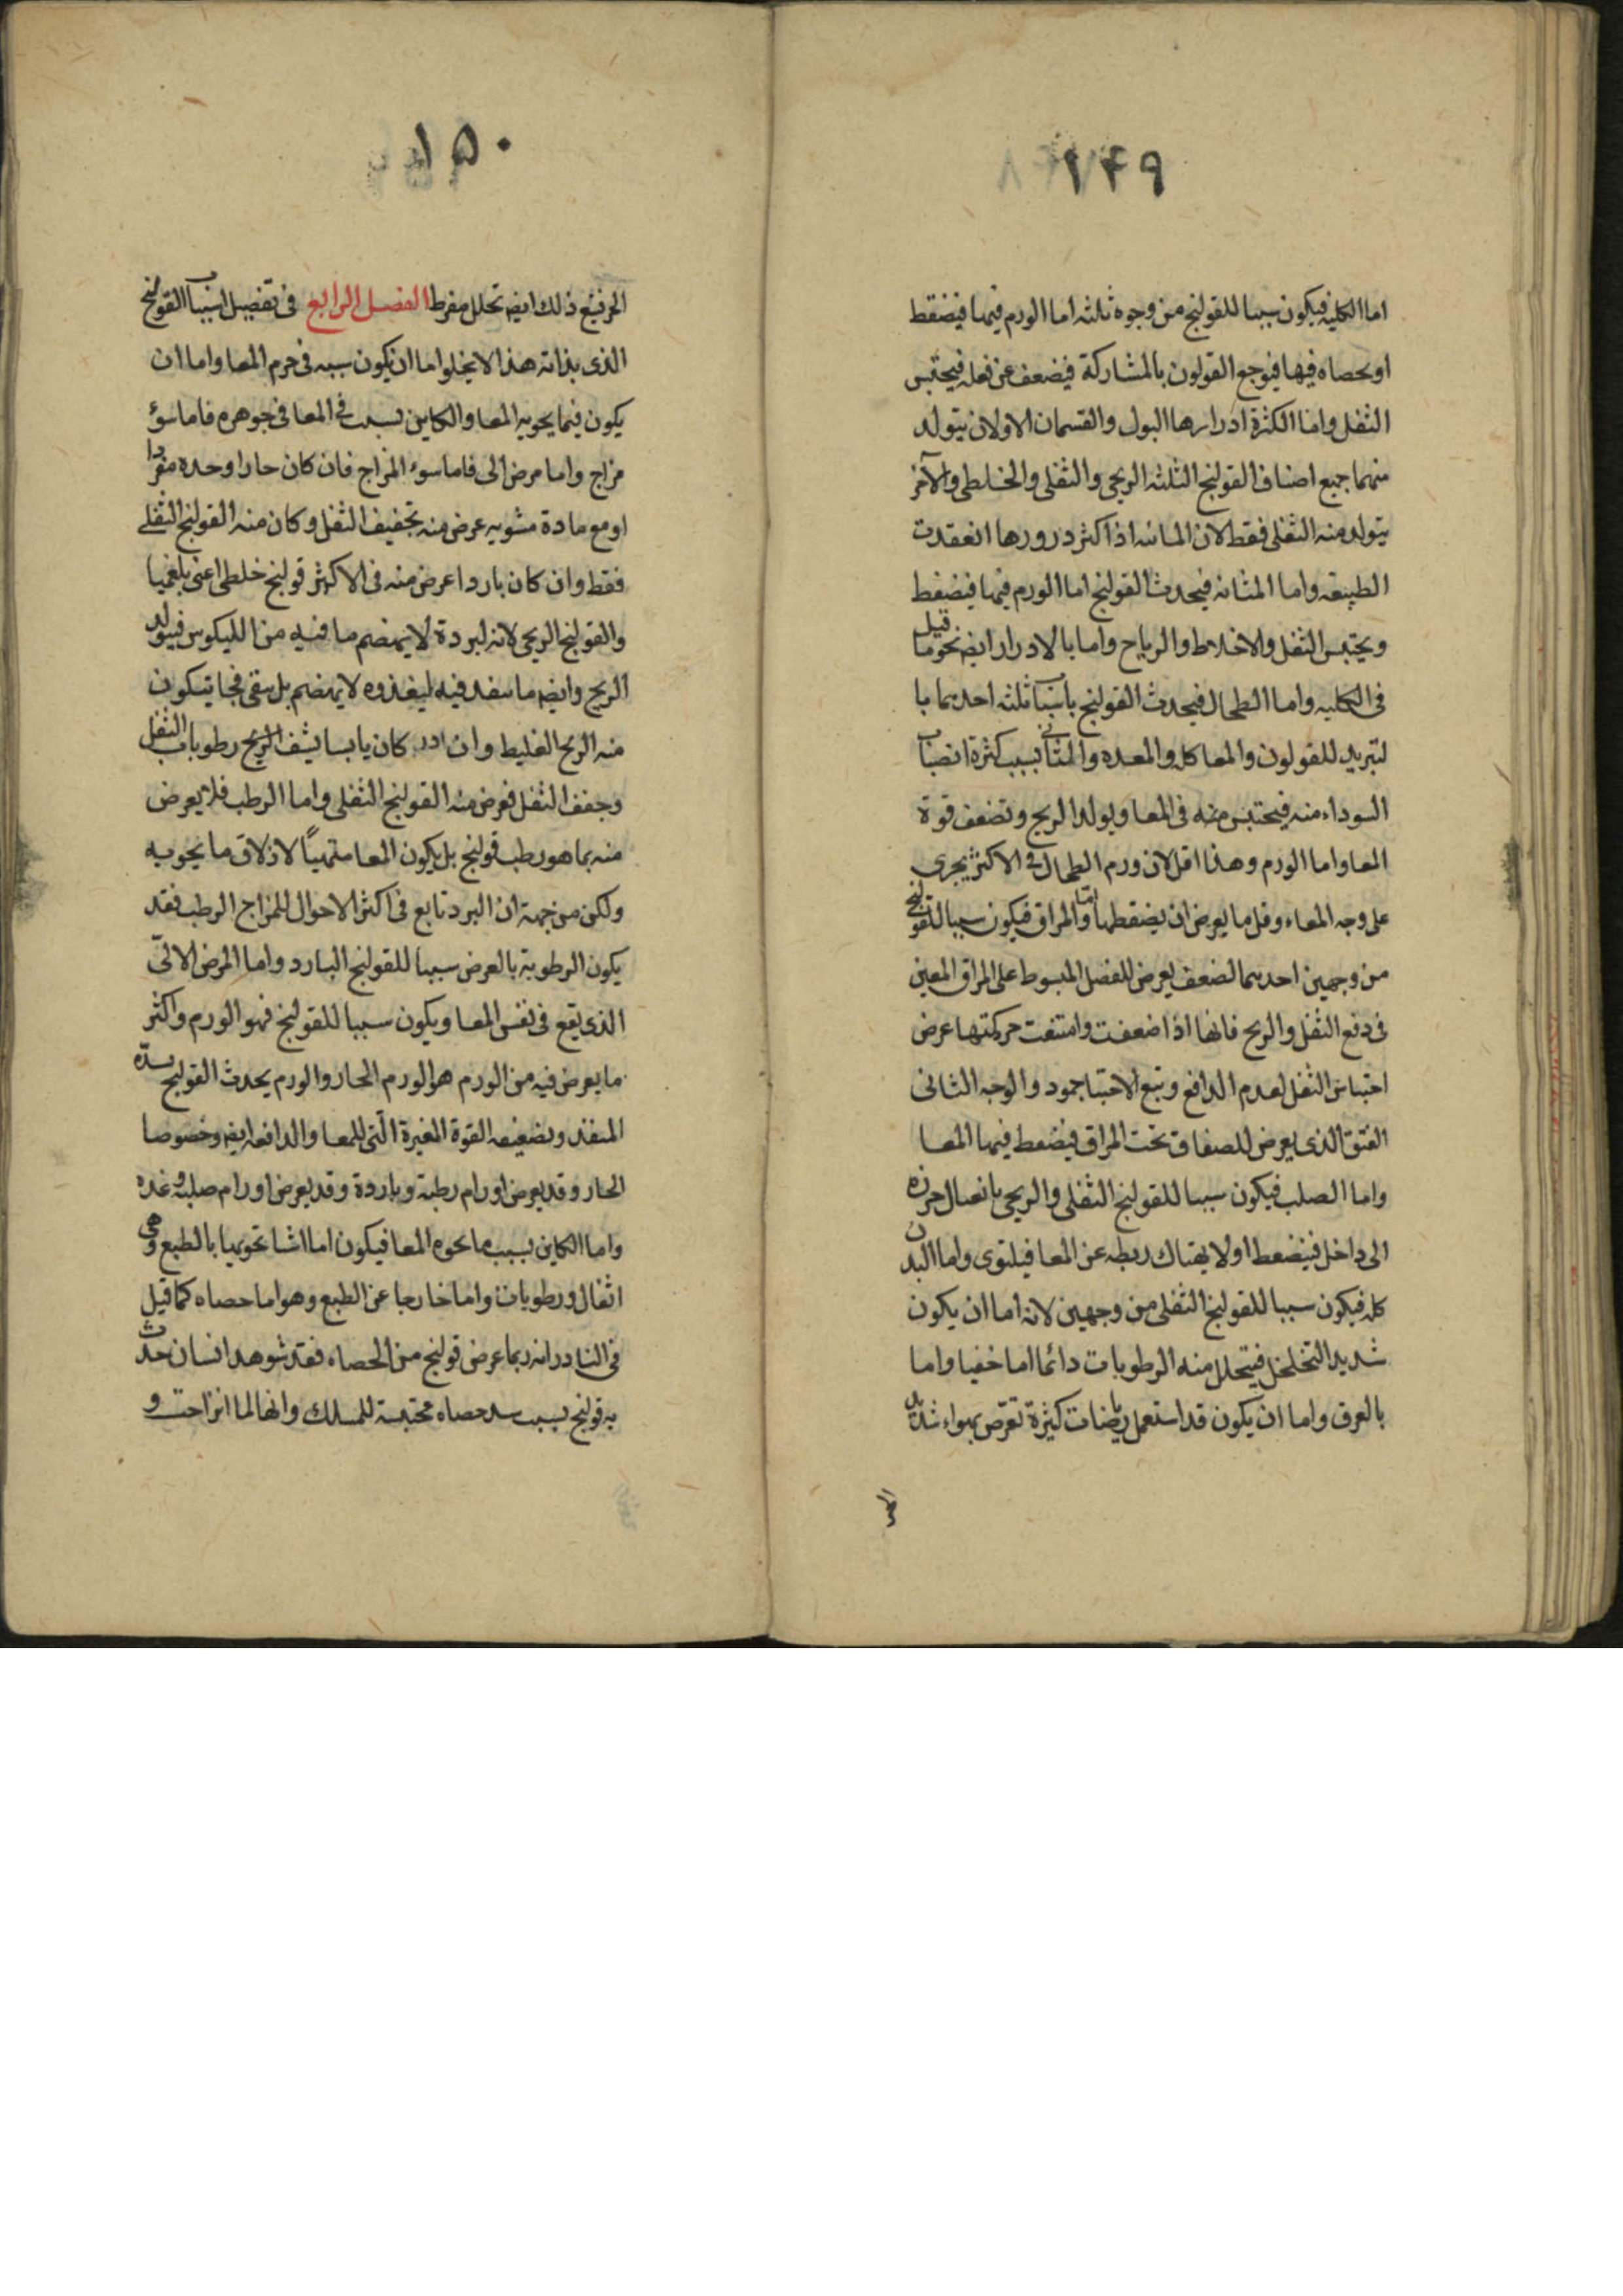 ١٤٩
اما الكليه فيكون سببا للقولنج من وجوه ثلثه اما الورم فيها فيضغط
او بحصاه فيها فيوجع القولون بالمشاركة فيضعف عن فعله فيحتبس
الثفل واما الكثرة ادرارها البول والقسمان الاولان يتولد
منهما جميع اصناف القولنج الثلثه الريحى والثفلى والخلطى والآخر
يتولد منه الثفلى فقط لان المائه اذا كثر درورها انعقدت
الطبيعه واما المثانه فيحدث القولنج اما الورم فيها فيضغط
ويحتبس الثفل والاخلاط والرياح واما بالادرار ايضه نحو ما قيل
فى الكليه واما الطحال فيحدث القولنج باسباب ثلثه احديهما با
لتبريد للقولون والمعا كله والمعده والثانى بسبب كثرة انصباب
السوداء منه فيحتبس منه فى المعا ويولد الريح وتضعف قوة
المعا واما الورم وهذا اقل لان ورم الطحال فى الاكثر يجرى
على وجه المعاء وقل ما يعرض ان يضغطها واما المراق فيكون سببا للقولنج
من وجهين احديهما لضعف يعرض للفضل المبسوط على المراق المعين
فى دفع الثفل والريح فانها اذا ضعفت وامتنعت حركتها عرض
احتباس الثفل لعدم الدافع وتبع الاحتبا جمود والوجه الثانى
الفتق الذى يعرض للصفاق تحت المراق فيضغط فيها المعا
واما الصلب فيكون سببا للقولنج الثفلى والريحى بانعسال حرزه
الى داخل فينضغط اولا يهتاك ربطه عن المعا فيلتوى واما البدن
كله فيكون سببا للقولنج الثفلى من وجهين لانه اما ان يكون
شديد التخلخل فيتحلل منه الرطوبات دائما اما خفيا واما
بالعرق واما ان يكون قد استعمل رياضات كثيرة تعرض بهواء شديد
الحر
١٥٠
الحر فيتبع ذلك ايضه تحلل مفرط الفصل الرابع فى تفصيل اسباب القولنج
الذى بذاته هذا لا يخلوا اما ان يكون سببه فى جرم المعا واما ان
يكون فيما يحويه المعا والكاين بسبب فى المعا فى جوهره فاما سوء
مزاج واما مرض الى فاما سوء المزاج فان كان حارا وحده مفردا
او مع مادة مشوبه عرض منه تجفيف الثفل وكان منه القولنج الثفلى
فقط وان كان باردا عرض منه فى الاكثر قولنج خلطى اعنى بلغميا
والقولنج الريحى لانه لبردة لا يهضم ما فيه من الليكوس فيتولد
الريح وايضه ما سفد فيه ليغذوه لا يهضم بل يبقى فجا يتكون
منه الريح الغليط وان كان يابسا يشف الريح رطوبات الثفل
وجفف الثفل فعرض منه القولنج الثفلى واما الرطب فلا يعرض
منه بما هو رطب قولنج بل يكون المعا متهيئاً لازلاق ما يحويه
ولكن من جهة ان البرد تابع فى اكثر الاحوال للمزاج الرطب فقد
يكون الرطوبة بالعرض سببا للقولنج البارد واما المرض الالىّ
الذى يقع فى نفس المعا ويكون سببا للقولنج فهو الورم واكثر
ما يعرض فيه من الورم هو الورم الحار والورم يحدث القولنج بسدّه
المنفذ وبضعيفه القوة المغيرة الّتى للمعا والدافعه ايضه وخصوصا
الحار وقد يعرض اورام رطبة وباردة وقد يعرض اورام صلبه وغده
واما الكاين بسبب ما يحوه المعا فيكون اما اشا تحويها بالطبع وهى
اثفال ورطوبات واما خارجا عن الطبع وهو اما حصاه كما قيل
فى النادر انه ربما عرض قولنج من الحصاه فقد شوهد انسان حدث
به قولنج بسبب سد حصاه محتبسة للمسلك وانها لما انزاحت و